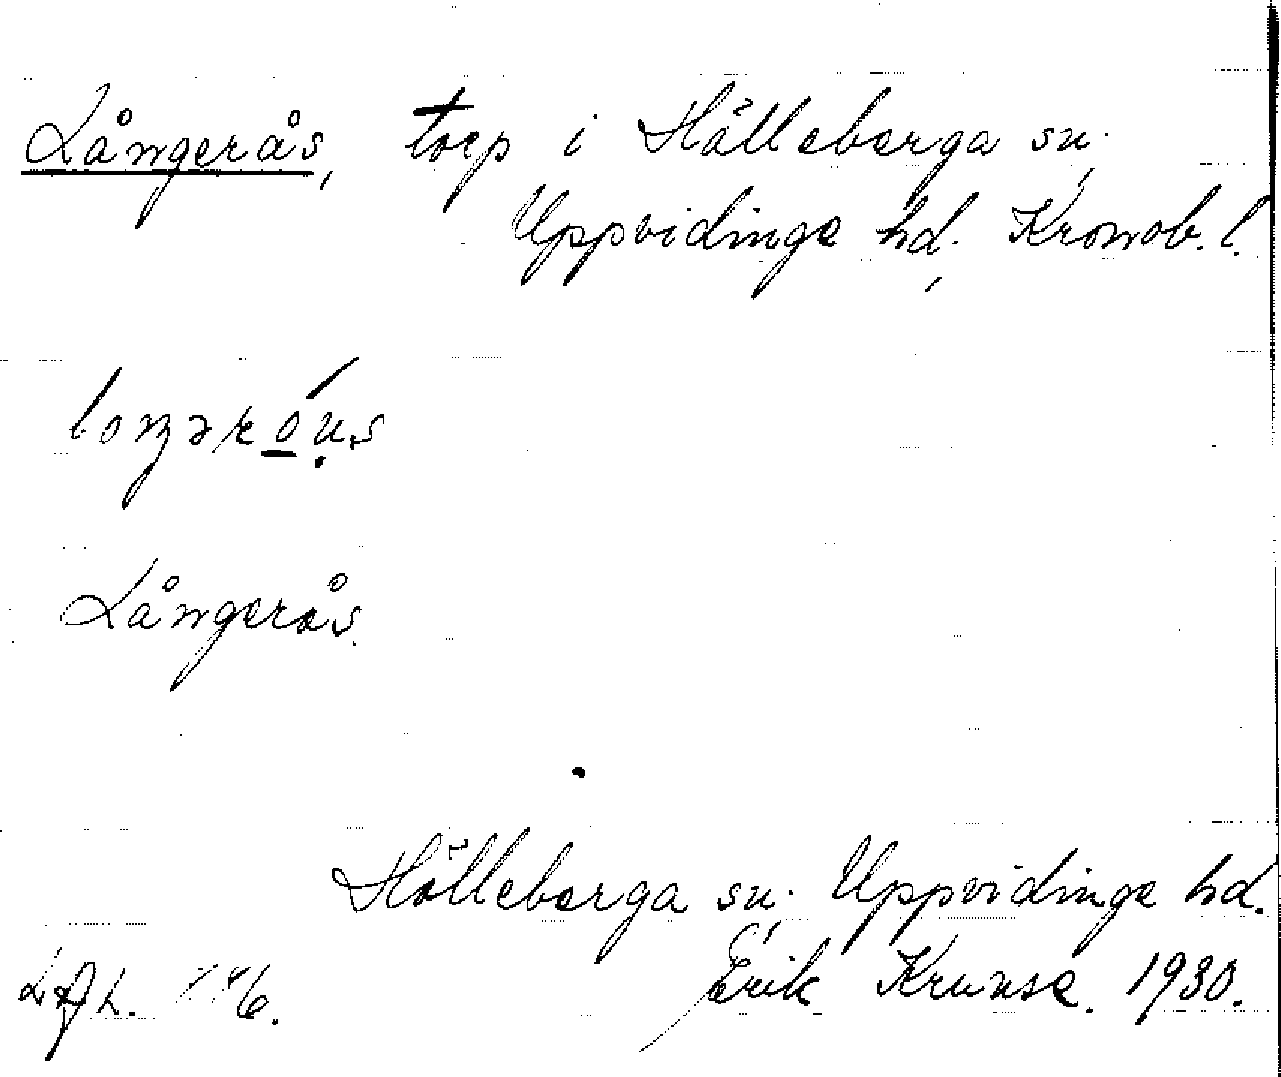 Långerås, torp i Hälleberga sn.
Uppvidinge hd. Kronob. l.
Långerås.
Hälleberga sn. Uppvidinge hd.
Erik Kruuse. 1930.